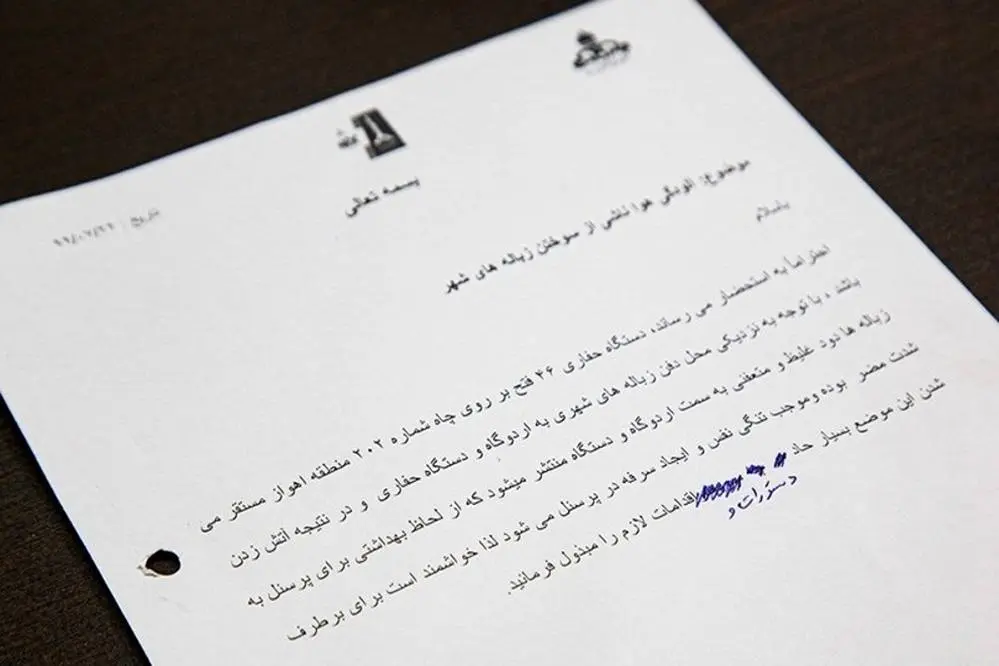 بسمه تعالی
تاریخ :
موضوع: آلودگی هوا ناشی از سوختن زباله های شهر
باسلام
احتراماً به استحضار می رساند، دستگاه حفاری ۴۶ فتح بر روی چاه شماره ۲۰۲ منطقه اهواز مستقر می
باشد ، با توجه به نزدیکی محل دفن زباله های شهری به اردوگاه و دستگاه حفاری و در نتیجه آتش زدن
زباله ها دود غلیظ و متعفنی به سمت اردوگاه و دستگاه منتشر میشود که از لحاظ بهداشتی برای پرسنل به
شدت مضر بوده وموجب تنگی نفض و ایجاد سرفه در پرسنل می شود لذا خواشمند است برای برطرف
شدن این موضع بسیار حاد اقدامات لازم را مبذول فرمانید.
دستورات و